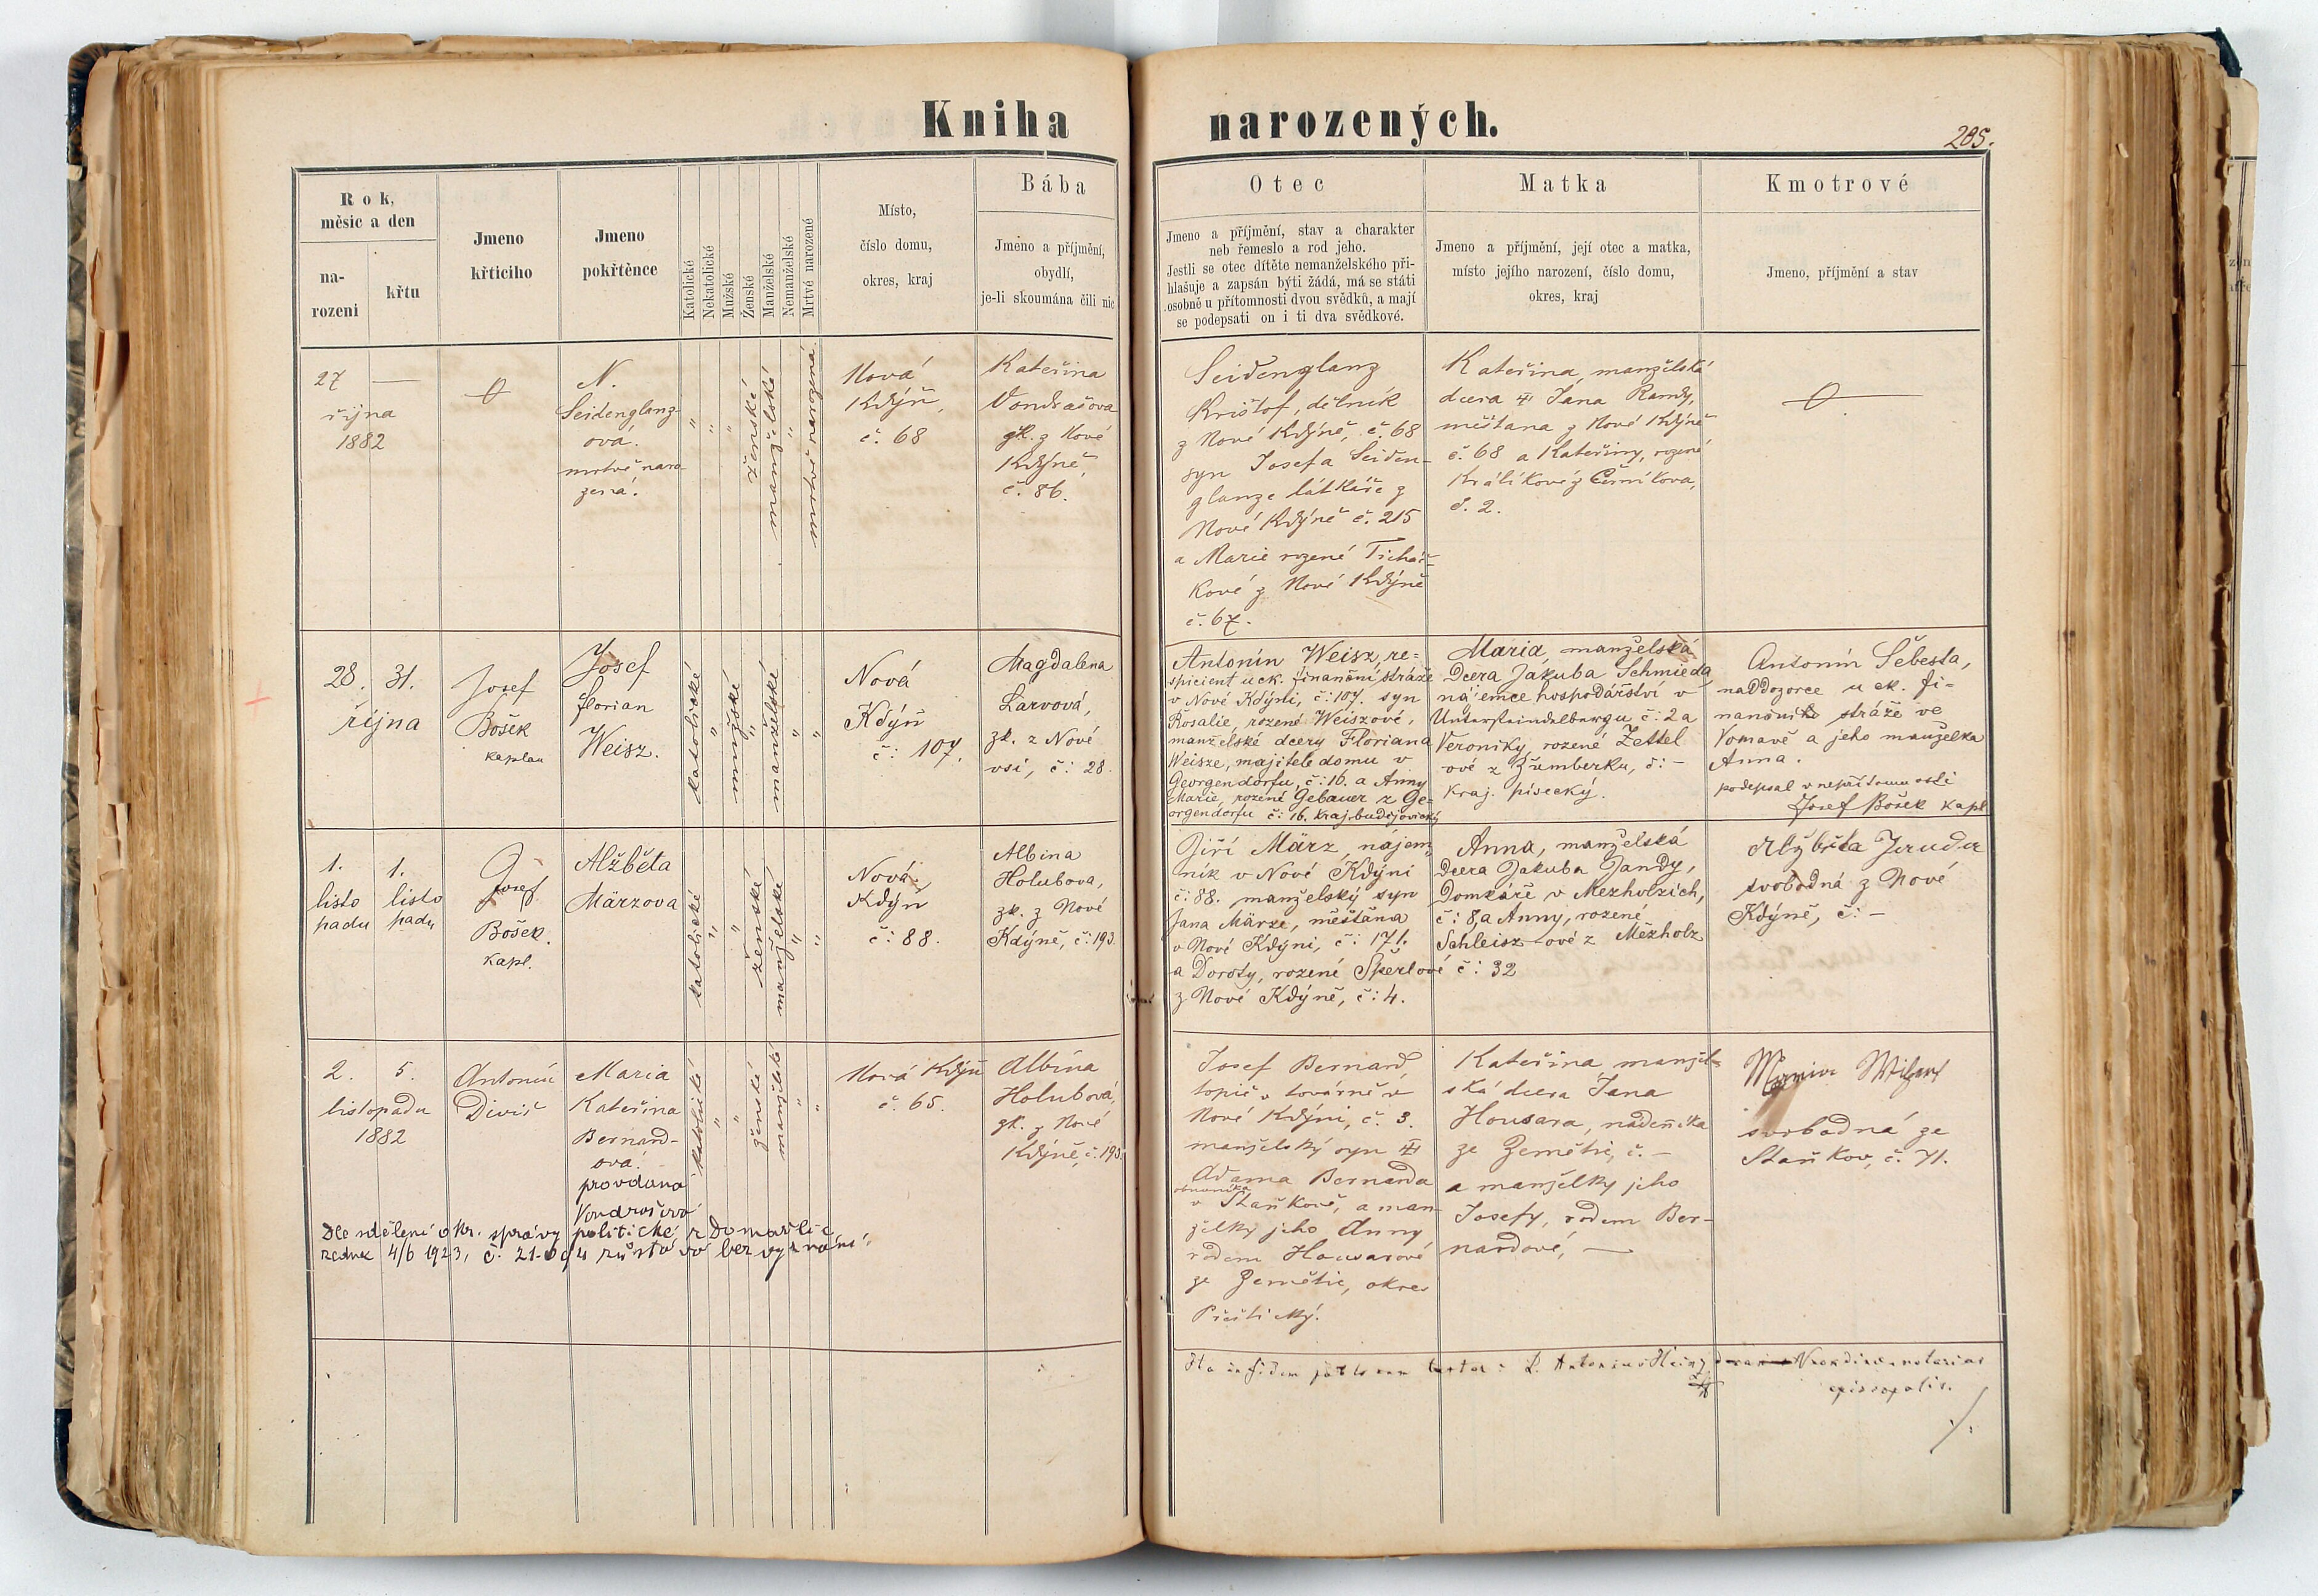 Kniha narozených.
205.
Rok,
měsíc a den
na-
rozeni
křtu
Jmeno
křticiho
Jmeno
pokřtěnce
Katolické
Nekatolické
Mužské
Ženské
Manželské
Nemanželské
Mrtvé narozené
Místo,
číslo domu,
okres, kraj
Bába
Jmeno a příjmění,
obydlí,
je-li skoumána čili nic
Otec
Jmeno a příjmění, stav a charakter
neb řemeslo a rod jeho.
Jestli se otec dítěte nemanželského při-
hlašuje a zapsán býti žádá, má se státi
osobně u přítomnosti dvou svědků, a mají
se podepsati on i ti dva svědkové.
Matka
Jmeno a příjmění, její otec a matka,
místo jejího narození, číslo domu,
okres, kraj
Kmotrové
Jmeno, příjmění a stav
27 —
října
1882
N.
Seidenglanz-
ová.
mrtvě naro-
zená.
ženské
manželské
mrtvě narozená
Nová
Kdýň,
č. 68
Kateřina
Vondrašova
zk. z Nové
Kdýně,
č. 86.
Seidenglanz
Krištof, dělník
z Nové Kdýně, č. 68
syn Josefa Seiden-
glanze látkaře z
Nové Kdýně č. 215
a Marie rozené Ticháč-
kové z Nové Kdýně
č. 67.
Kateřina, manželská
dcera Jána Randy,
měštana z Nové Kdýně
č. 68 a Kateřiny, rozené
Králíkové z
č. 2.
28. 31.
října
Josef
Bošek
kaplan
Josef
Florian
Weisz.
katolické
mužské
manželské
Nová
Kdýň
č: 107.
Magdalena
Larvová,
zk. z Nové
vsi, č: 28.
Antonín Weisz, re-
spicient u ck. finanční stráže
v Nové Kdýni, č: 107. syn
Rosalie, rozené Weiszové,
manželské dcery Floriana
Weisze, majitele domu v
Georgendorfu, č: 16. a Anny
Marie, rozené Gebauer z Ge-
orgendorfu č: 16. kraj. budějovický
Maria, manželská
Dcera Jakuba Schmieda
nájemce hospodářství v
č: 2 a
Veroniky, rozené Zettel
ové z Žumberku, č: –
kraj. písecký.
Antonín Šebesta,
naddozorce u ck. fi-
nanční stráže ve
Vomavě a jeho manželka
Anna.
podepsal v nepřítomnosti
Josef Bošek kapl
1. 1.
listo listo
padu padu
Josef
Bošek.
kapl.
Alžběta
Märzova
katolické
ženské
manželské
Nová
Kdýň
č: 88.
Albina
Holubova,
zk. z Nové
Kdýně, č: 193.
Jiří März, nájem-
ník v Nové Kdýni
č: 88. manželský syn
Jana Märze, měštana
v Nové Kdýni, č: 171.
a Doroty, rozené Šperlové
z Nové Kdýně, č: 4.
Anna, manželská
Dcera Jakuba Jandy,
Domkáře v Mezholzích,
č: 8, a Anny, rozené
Schleisz-ové z Mezholz
č: 32
Alžběta
svobodná z Nové
Kdýně, č: –
2. 5.
listopadu
1882
Antonín
Diviš
Maria
Kateřina
Bernard-
ová.
provdaná
Vondrašová
katolické
ženské
manželské
Nová Kdýň
č. 65.
Albína
Holubová,
zk. z Nové
Kdýně, č. 193.
Josef Bernard
topič v továrně v
Nové Kdýni, č. 3.
manželský syn
Adama Bernarda
obuvníka
v Staňkově, a man-
želky jeho Anny
rodem Hausarové
ze Zemětic, okres
Přeštický.
Kateřina, manžel-
ská dcera Jana
Housara, nádeníka
ze Zemětic, č. –
a manželky jeho
Josefy, rodem Ber-
nardové, —
svobodná ze
Staňkov, č. 71.
Dle sdělení okr. správy politické z Domažlic
ze dne 4/6 1923, č. bez vyznání
Ita in fidem publicam testor: L. Antonius
episcopalis.